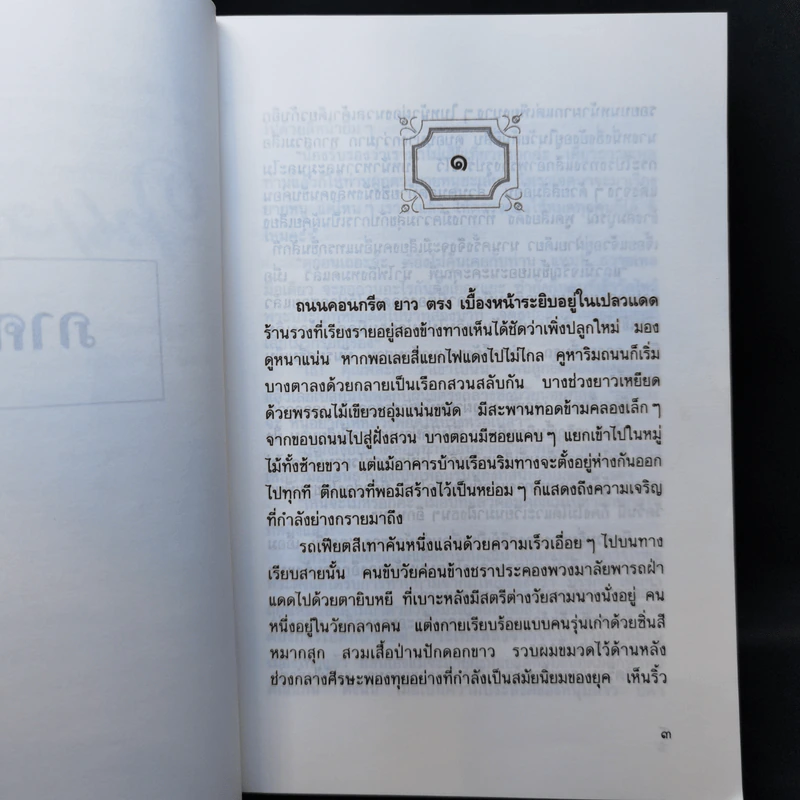 ภาค
๑
ถนนคอนกรีต ยาว ตรง เบื้องหน้าระยิบอยู่ในเปลวแดด
ร้านรวงที่เรียงรายอยู่สองข้างทางเห็นได้ชัดว่าเพิ่งปลูกใหม่ มอง
ดูหนาแน่น หากพอเลยสี่แยกไฟแดงไปไม่ไกล คูหาริมถนนก็เริ่ม
บางตาลงด้วยกลายเป็นเรือกสวนสลับกัน บางช่วงยาวเหยียด
ด้วยพรรณไม้เขียวชอุ่มแน่นขนัด มีสะพานทอดข้ามคลองเล็กๆ
จากขอบถนนไปสู่ฝั่งสวน บางตอนมีซอยแคบๆ แยกเข้าไปในหมู่
ไม้ทั้งซ้ายขวา แต่แม้อาคารบ้านเรือนริมทางจะตั้งอยู่ห่างกันออก
ไปทุกที ตึกแถวที่พอมีสร้างไว้เป็นหย่อมๆ ก็แสดงถึงความเจริญ
ที่กำลังย่างกรายมาถึง
รถเฟียตสีเทาคันหนึ่งแล่นด้วยความเร็วเอื่อยๆ ไปบนทาง
เรียบสายนั้น คนขับวัยค่อนข้างชราประคองพวงมาลัยพารถฝ่า
แดดไปด้วยตายิบหยี ที่เบาะหลังมีสตรีต่างวัยสามนางนั่งอยู่ คน
หนึ่งอยู่ในวัยกลางคน แต่งกายเรียบร้อยแบบคนรุ่นเก่าด้วยซิ่นสี
หมากสุก สวมเสื้อป่านปักดอกขาว รวบผมขมวดไว้ด้านหลัง
ช่วงกลางศีรษะพองทุยอย่างที่กำลังเป็นสมัยนิยมของยุค เห็นริ้ว
๓